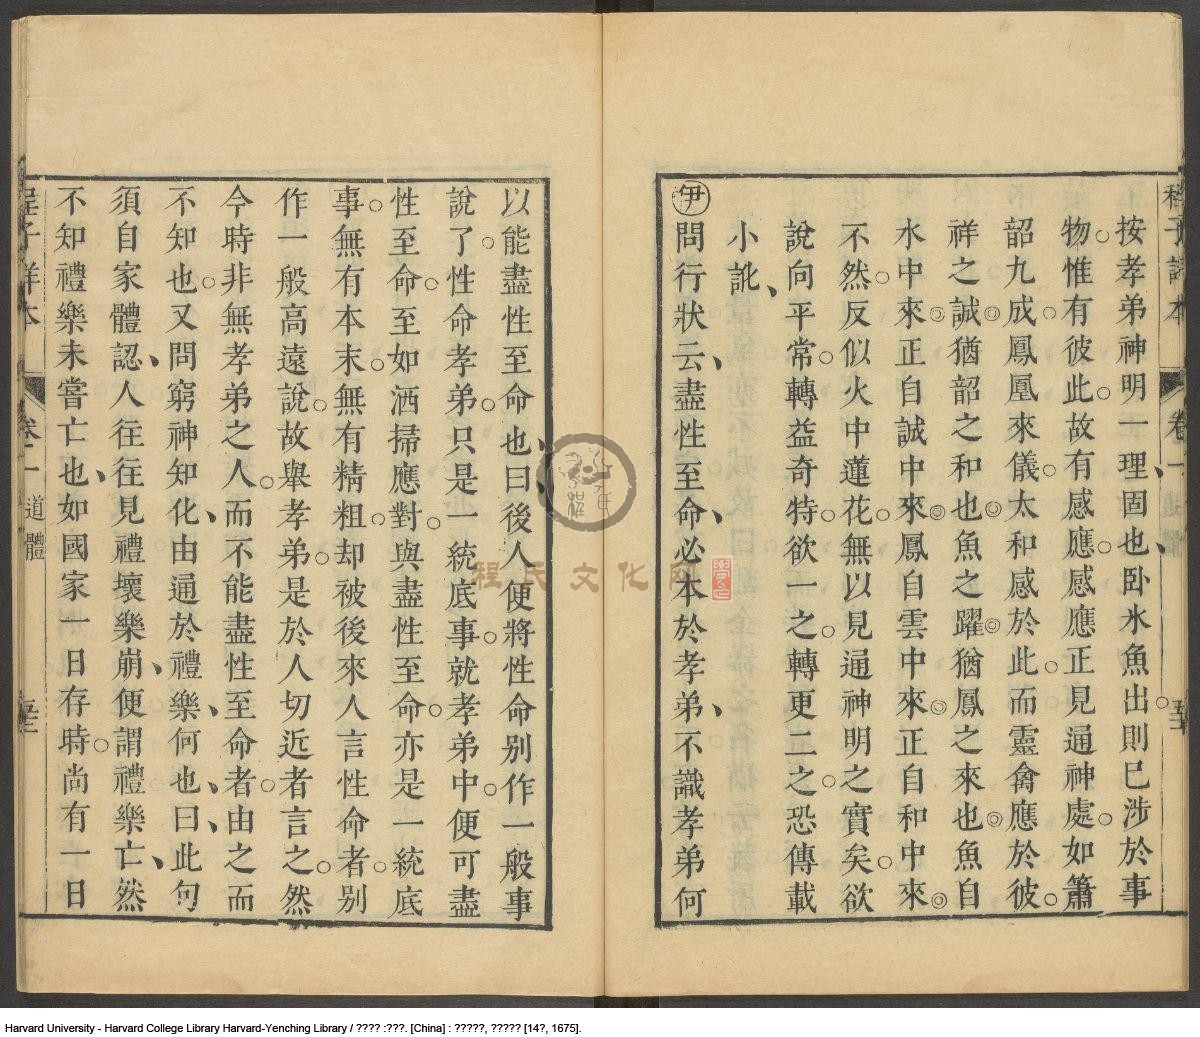 程子詳本 卷二 道體 五十
按孝弟神明一理固也臥氷魚出則已涉於事
物惟有彼此故有感應感應正見通神處如簫
韶九成鳳凰來儀太和感於此而靈禽應於彼
祥之誠猶韶之和也魚之躍猶鳳之來也魚自
水中來正自誠中來鳳自雲中來正自和中來
不然反似火中蓮花無以見通神明之實矣欲
說向平常轉益奇特欲一之轉更二之恐傳載
小訛
伊問行狀云盡性至命必本於孝弟不識孝弟何
以能盡性至命也曰後人便將性命別作一般事
說了性命孝弟只是一統底事就孝弟中便可盡
性至命至如洒掃應對與盡性至命亦是一統底
事無有本末無有精粗却被後來人言性命者別
作一般高遠說故舉孝弟是於人切近者言之然
今時非無孝弟之人而不能盡性至命者由之而
不知也又問窮神知化由通於禮樂何也曰此句
須自家體認人往往見禮壞樂崩便謂禮樂亡然
不知禮樂未嘗亡也如國家一日存時尚有一日
程子詳本 卷二 道體
程氏文化网
Harvard University - Harvard College Library Harvard-Yenching Library / ???? :???. [China] : ?????, ????? [14?, 1675].